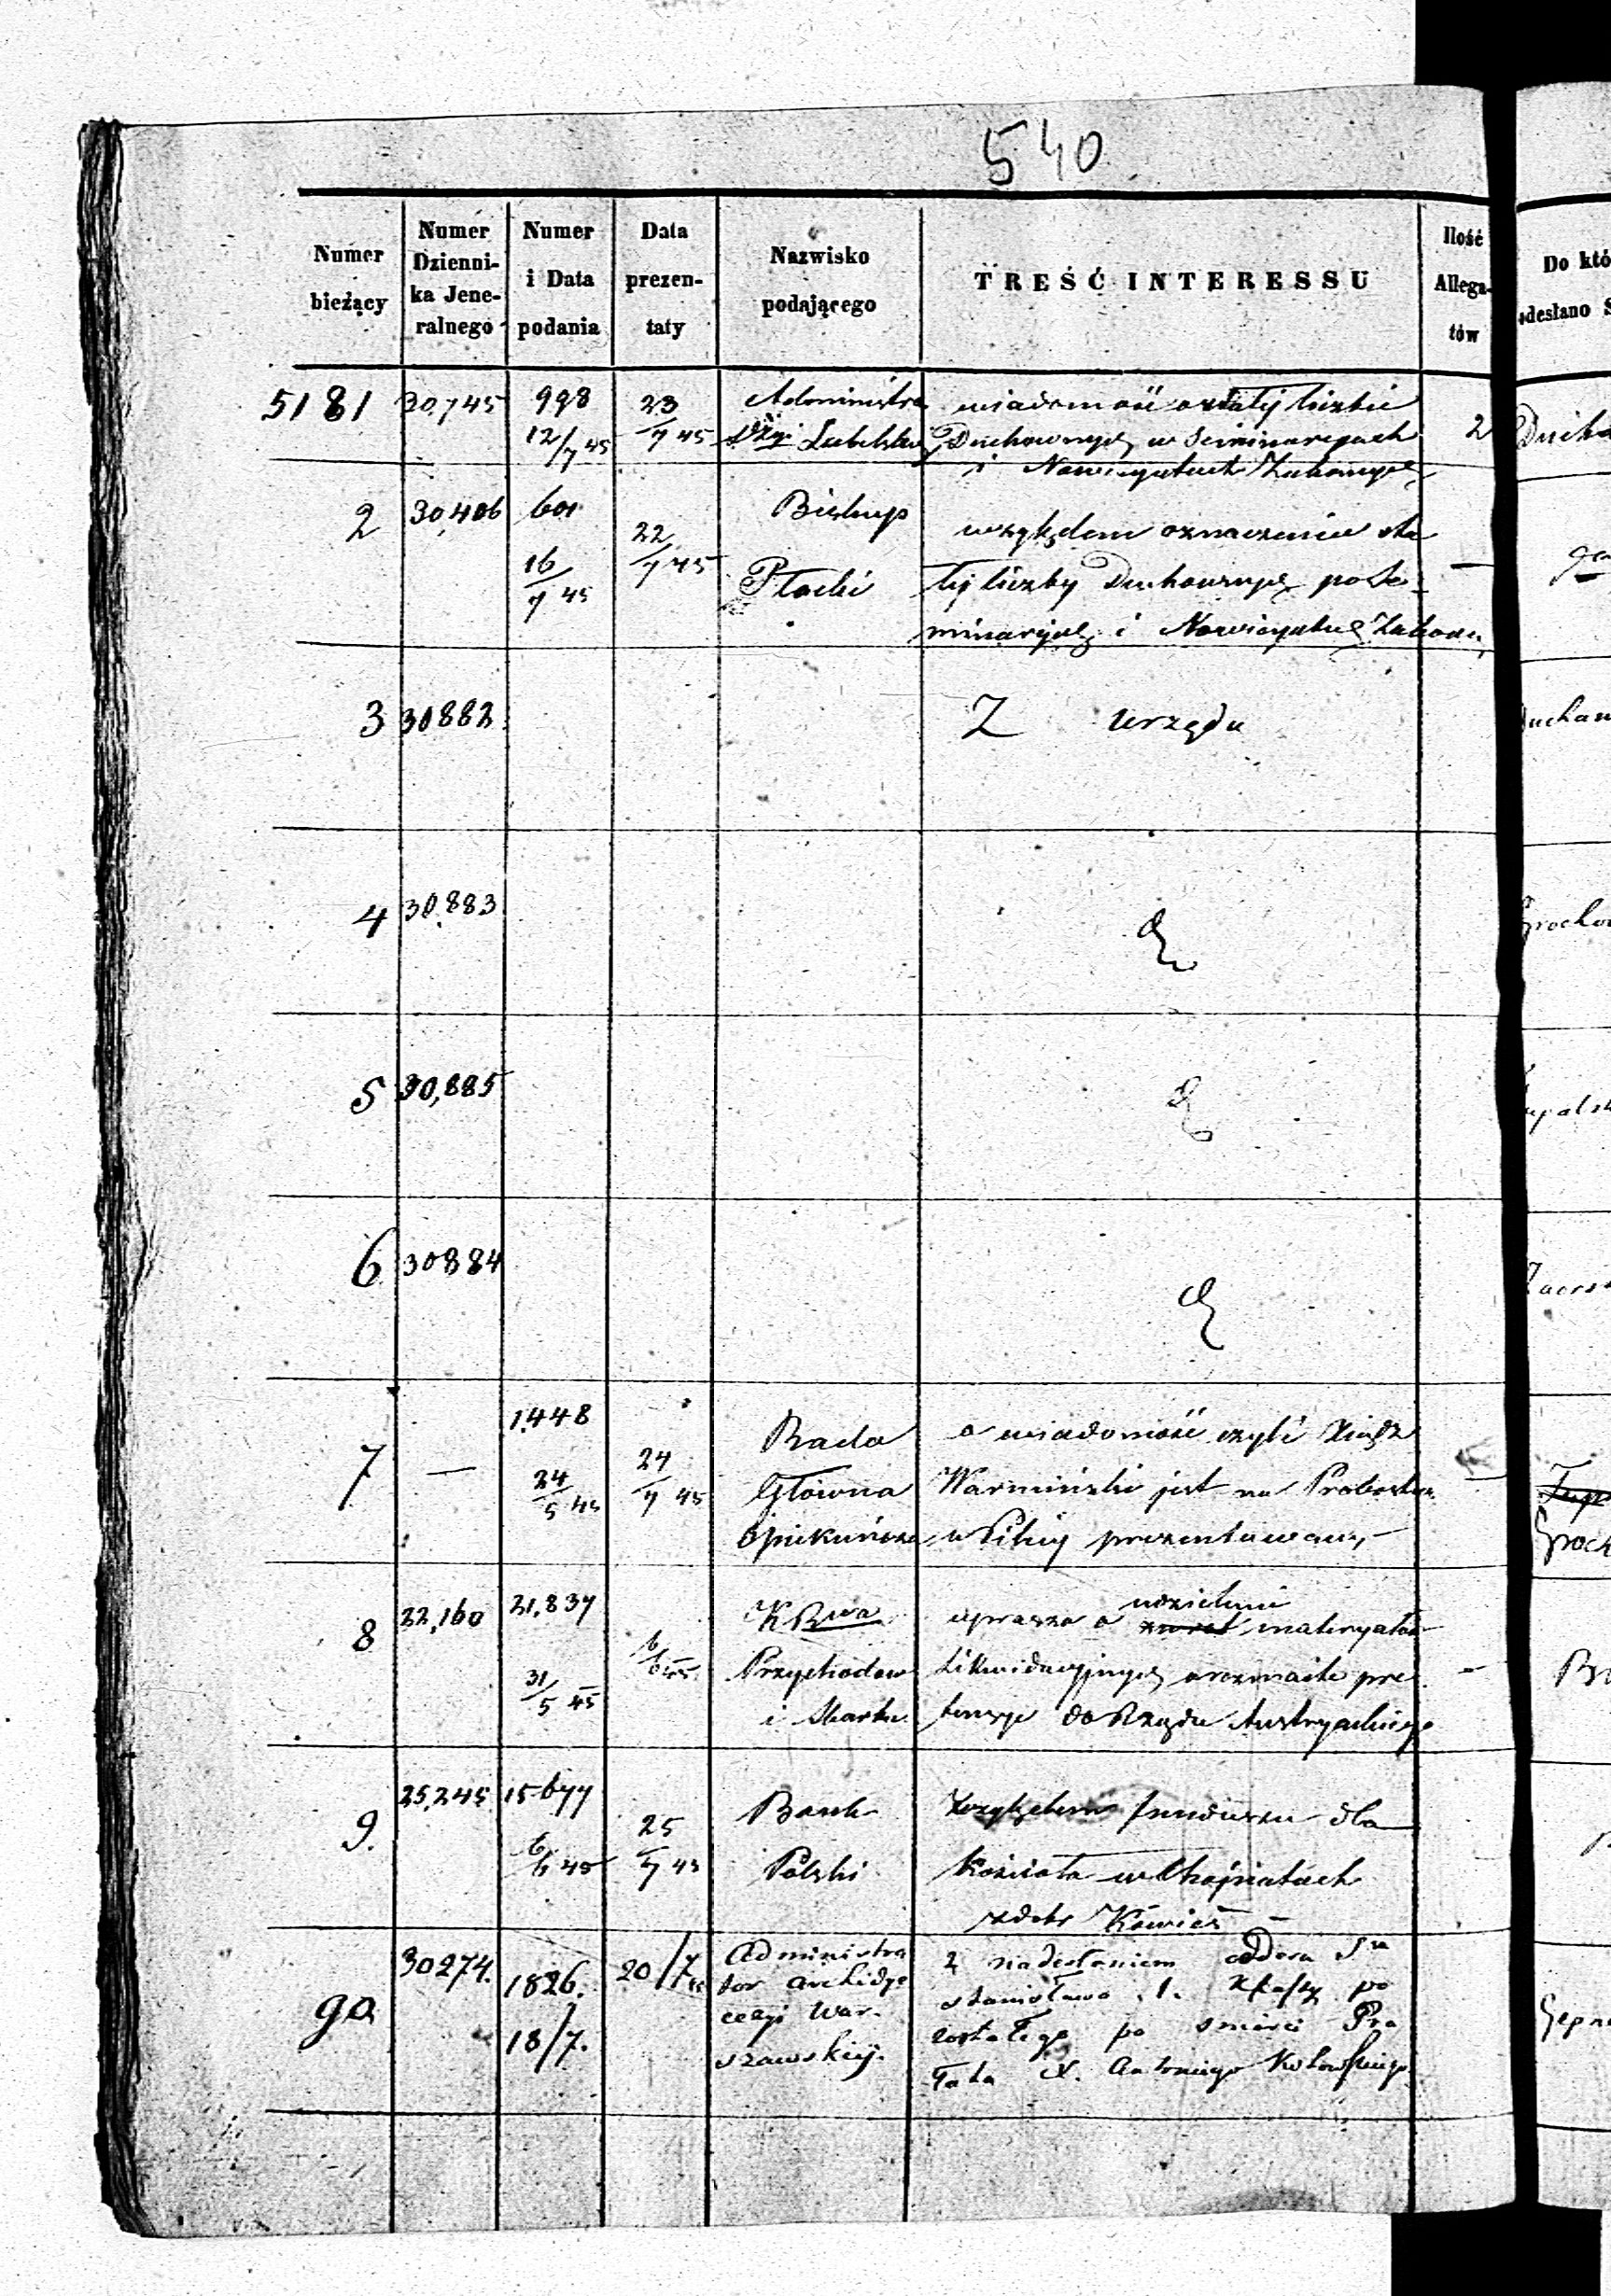 540
Numer bieżący
Numer Dzienni-ka Jene-ralnego
Numer i Data podania
Data prezen-taty
Nazwisko podającego
TREŚĆ INTERESSU
Ilość Allega-tów
Do któ
odesłano S
5181 30,745 998 12/7 45 23/7 45
Administra
Dyi Lubelskiej
wiadomość o stałej liczbie
Duchownych w Seminaryach
i Nowicyatach Zakonnych
2
2 30,406 601 16/7 45 22/7 45
Biskup
Płocki
względem oznaczenia sta
łej liczby Duchownych po Se-
minaryach i Nowicyatach Zakonn
—
3 30882
Z Urzędu
4 30,883
5 30,885
6 30884
7 — 1448 24/5 45 24/7 45
Rada
Główna
Opiekuńcza
o wiadomość czyli Xiądz
Warmiński jest na Probostwo
w Pilicy prezentowany —
—
Groch
8 22,160 21,837 31/5 45
K R wa
Przychodów
i Skarbu
uprasza o zwrot udzielenie materyałów
Likwidacyjnych o rozmaite pre
tensye do Rządu Austryackiego
—
9. 25,245 15677 6/6 45 25/7 45
Bank
Polski
Względem funduszu dla
Kościoła w Chojnatach
z dóbr Kowies —
90 30274. 1826. 18/7. 20/7
Administra
tor Archidye
cezyi War-
szawskiej.
z nadesłaniem Orderu Sgo
Stanisława 1. Klassy po
zostałego po śmierci Pra
łata X. Antoniego Kotowskiego